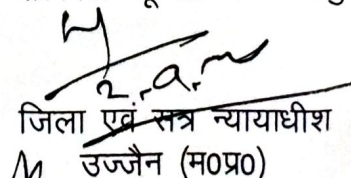 जिला एवं सत्र न्यायाधीश
उज्जैन (म०प्र०)